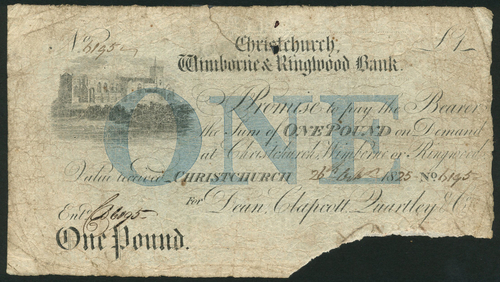 No. 6195
£1
Christchurch,
Wimborne & Ringwood Bank.
ONE
I Promise to pay the Bearer
the Sum of ONE POUND on Demand
at Christchurch, Wimborne or Ringwood
Value received CHRISTCHURCH 1825 No 6195
For Dean, Clapcott, Quartley & Co.
Entd.
One Pound.